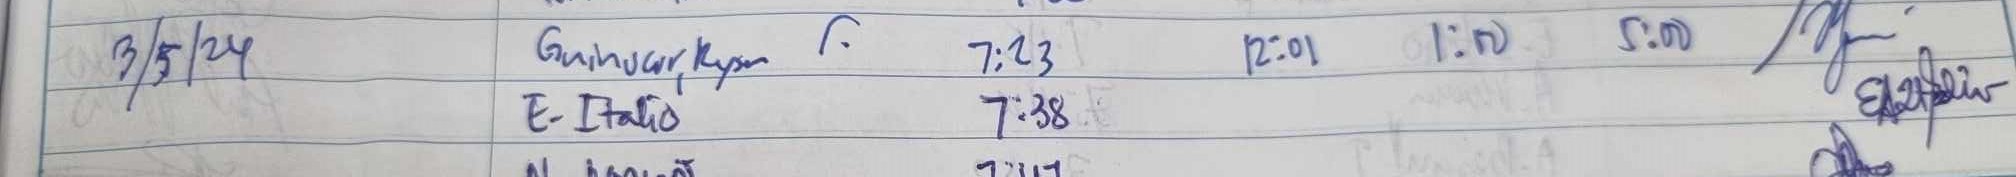 3/5/24 Guinocor, Ryan C. 7:23 12:01 1:00 5:00
E- Italio 7:38